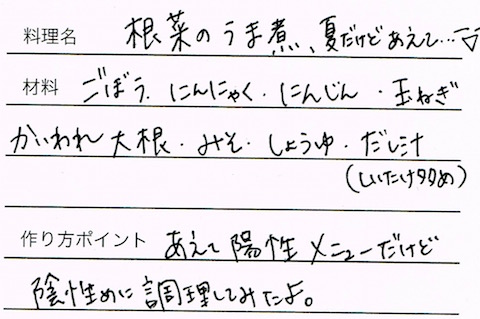 料理名 根菜のうま煮、夏だけどあえて…▽
材料 ごぼう・にんにゃく・にんじん・玉ねぎ
かいわれ大根・みそ・しょうゆ・だし汁
(しいたけ多め)
作り方ポイント あえて陽性メニューだけど
陰性めに調理してみたよ。